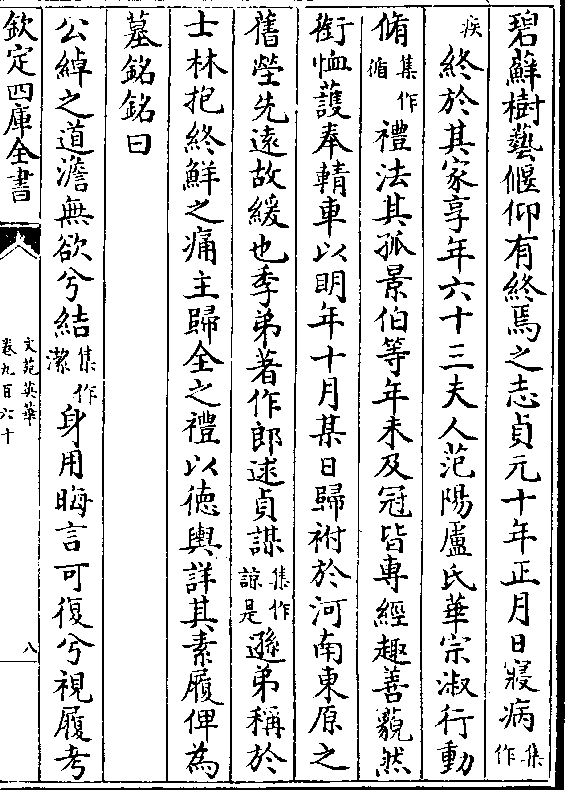 碧蘚樹藝偃仰有終焉之志貞元十年正月日寢病集作
疾終於其家享年六十三夫人范陽盧氏華宗淑行動
脩集作循禮法其孤景伯等年未及冠皆專經趣善藐然
銜恤護奉輤車以明年十月某日歸祔於河南東原之
舊塋先遠故緩也季弟著作郎逑貞謀集作諒是遜弟稱於
士林抱終鮮之痛主歸全之禮以德輿詳其素履俾為
墓銘銘曰
公綽之道澹無欲兮結集作潔身用晦言可復兮視履考
欽定四庫全書
文苑英華
卷九百六十
八